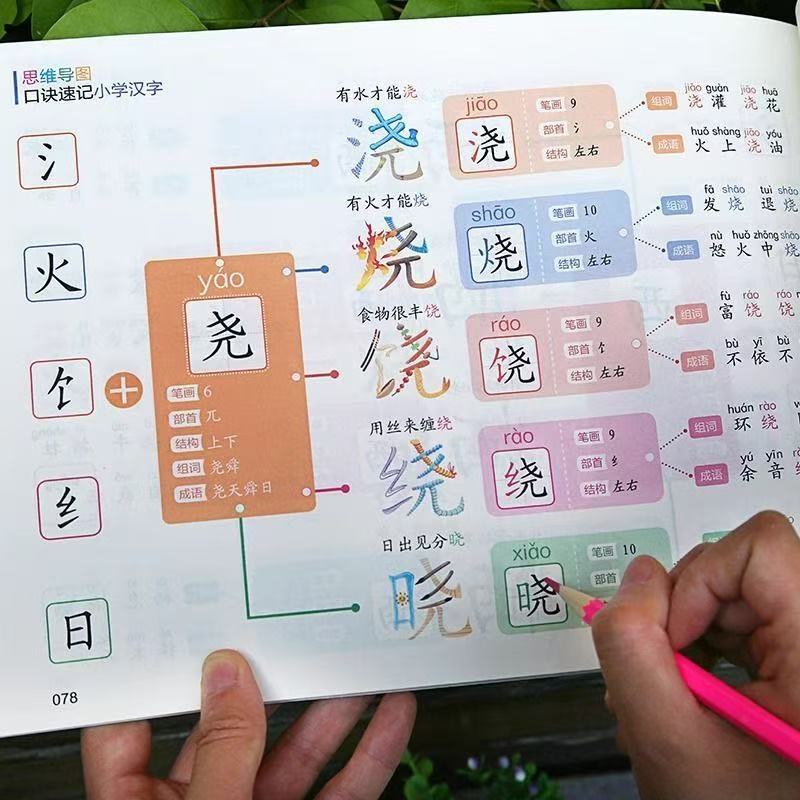 思维导图
口诀速记小学汉字
氵
火
饣
纟
日
yáo
尧
笔画 6
部首 兀
结构 上下
组词 尧舜
成语 尧天舜日
有水才能浇
浇
jiāo
浇
笔画 9
部首 氵
结构 左右
jiāo guàn jiāo huā
组词 浇灌 浇花
huǒ shàng jiāo yóu
成语 火上浇油
有火才能烧
烧
shāo
烧
笔画 10
部首 火
结构 左右
fā shāo tuì shāo
组词 发烧 退烧
nù huǒ zhōng shāo
成语 怒火中烧
食物很丰饶
饶
ráo
饶
笔画 9
部首 饣
结构 左右
fù ráo ráo
组词 富饶 饶
bù yī bù
成语 不依不
用丝来缠绕
绕
rào
绕
笔画 9
部首 纟
结构 左右
huán rào
组词 环绕
yú yīn
成语 余音
日出见分晓
晓
xiǎo
晓
笔画 10
部首
078